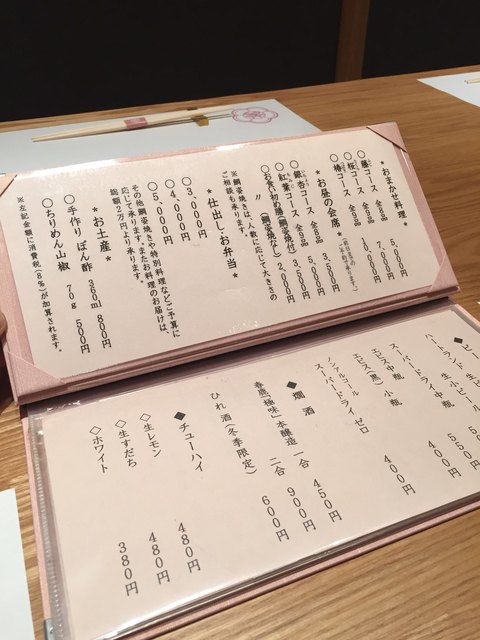 ＊おまかせ料理＊
○藤コース 全8品 5,000円
○桜コース 全9品 7,000円
○椿コース 全9品 10,000円
＊お昼の会席＊
○銀杏コース 全8品 3,500円
○紅葉コース 全9品 5,000円
○お食い初め膳(鯛姿焼付) 3,500円
〃 (鯛姿焼なし) 2,000円
※鯛姿焼きは、人数に応じて大きさの
ご相談も承ります。
＊仕出し・お弁当＊
○3,000円
○4,000円
○5,000円
その他鯛姿焼きや特別料理などご予算に
応じて承ります。またお料理のお届けは、
総額2万円より承ります。
＊お土産＊
○手作り ぽん酢 360ml 800円
○ちりめん山椒 70g 500円
※左記金額に消費税(8%)が加算されます。
ハートランド 生小ビール
スーパードライ 中瓶
エビス中瓶
エビス(黒) 小瓶 400円
ノンアルコール
スーパードライ ゼロ 400円
◆燗酒
春鹿「極味」本醸造 一合 450円
二合 900円
ひれ酒(冬季限定) 600円
◆チューハイ
◇生レモン 480円
◇生すだち 480円
◇ホワイト 380円